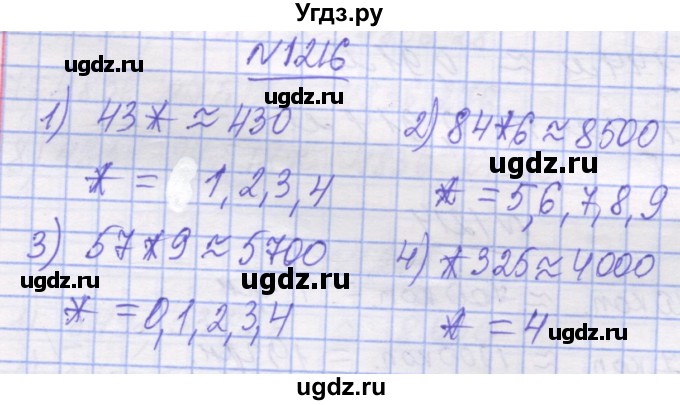 Угдз.ру
N1216
ugdz.ru
ugdz.ru
1) 43* ≈ 430
2) 84*6 ≈ 8500
ugdz.ru
* = 1, 2, 3, 4
* = 5, 6, 7, 8, 9
3) 57*9 ≈ 5700
4) *325 ≈ 4000
ugdz.ru
ugdz.ru
* = 0, 1, 2, 3, 4
* = 4
ugdz.ru
ugdz.ru
ugdz.ru